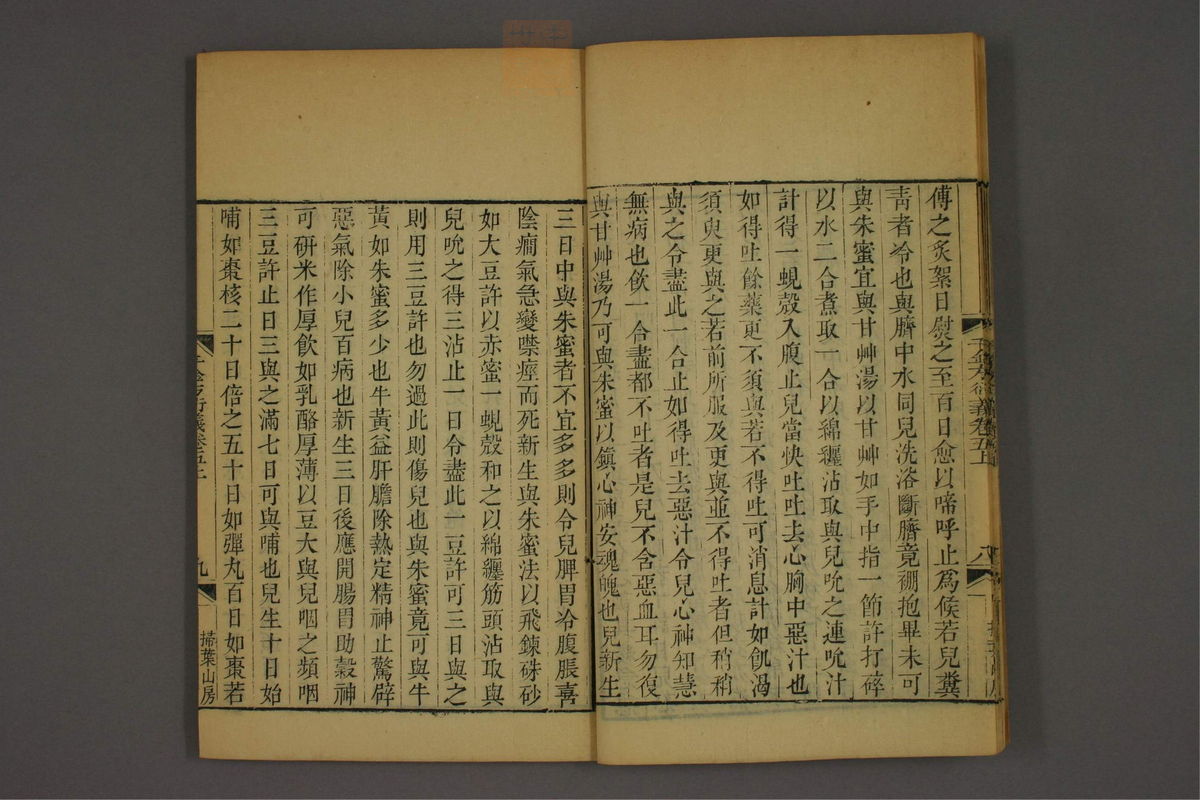 傅之炙絮日熨之至百日愈以啼呼止爲候若兒糞
靑者冷也與臍中水同兒洗浴斷臍竟繃抱畢未可
與朱蜜宜與甘艸湯以甘艸如手中指一節許打碎
以水二合煮取一合以綿纒沾取與兒吮之連吮汁
計得一蜆殼入腹止兒當快吐吐去心胸中惡汁也
如得吐餘藥更不須與若不得吐可消息計如飢渴
須臾更與之若前所服及更與並不得吐者但稍稍
與之令盡此一合止如得吐去惡汁令兒心神知慧
無病也飮一合盡都不吐者是兒不含惡血耳勿復
與甘艸湯乃可與朱蜜以鎭心神安魂魄也兒新生
三日中與朱蜜者不宜多多則令兒脾胃冷腹脹喜
陰癎氣急變噤痙而死新生與朱蜜法以飛鍊硃砂
如大豆許以赤蜜一蜆殼和之以綿纒筋頭沾取與
兒吮之得三沾止一日令盡此一豆許可三日與之
則用三豆許也勿過此則傷兒也與朱蜜竟可與牛
黃如朱蜜多少也牛黃益肝膽除熱定精神止驚辟
惡氣除小兒百病也新生三日後應開腸胃助穀神
可硏米作厚飮如乳酪厚薄以豆大與兒咽之頻咽
三豆許止日三與之滿七日可與哺也兒生十日始
哺如棗核二十日倍之五十日如彈丸百日如棗若
千金方衍義卷五上
九
掃葉山房